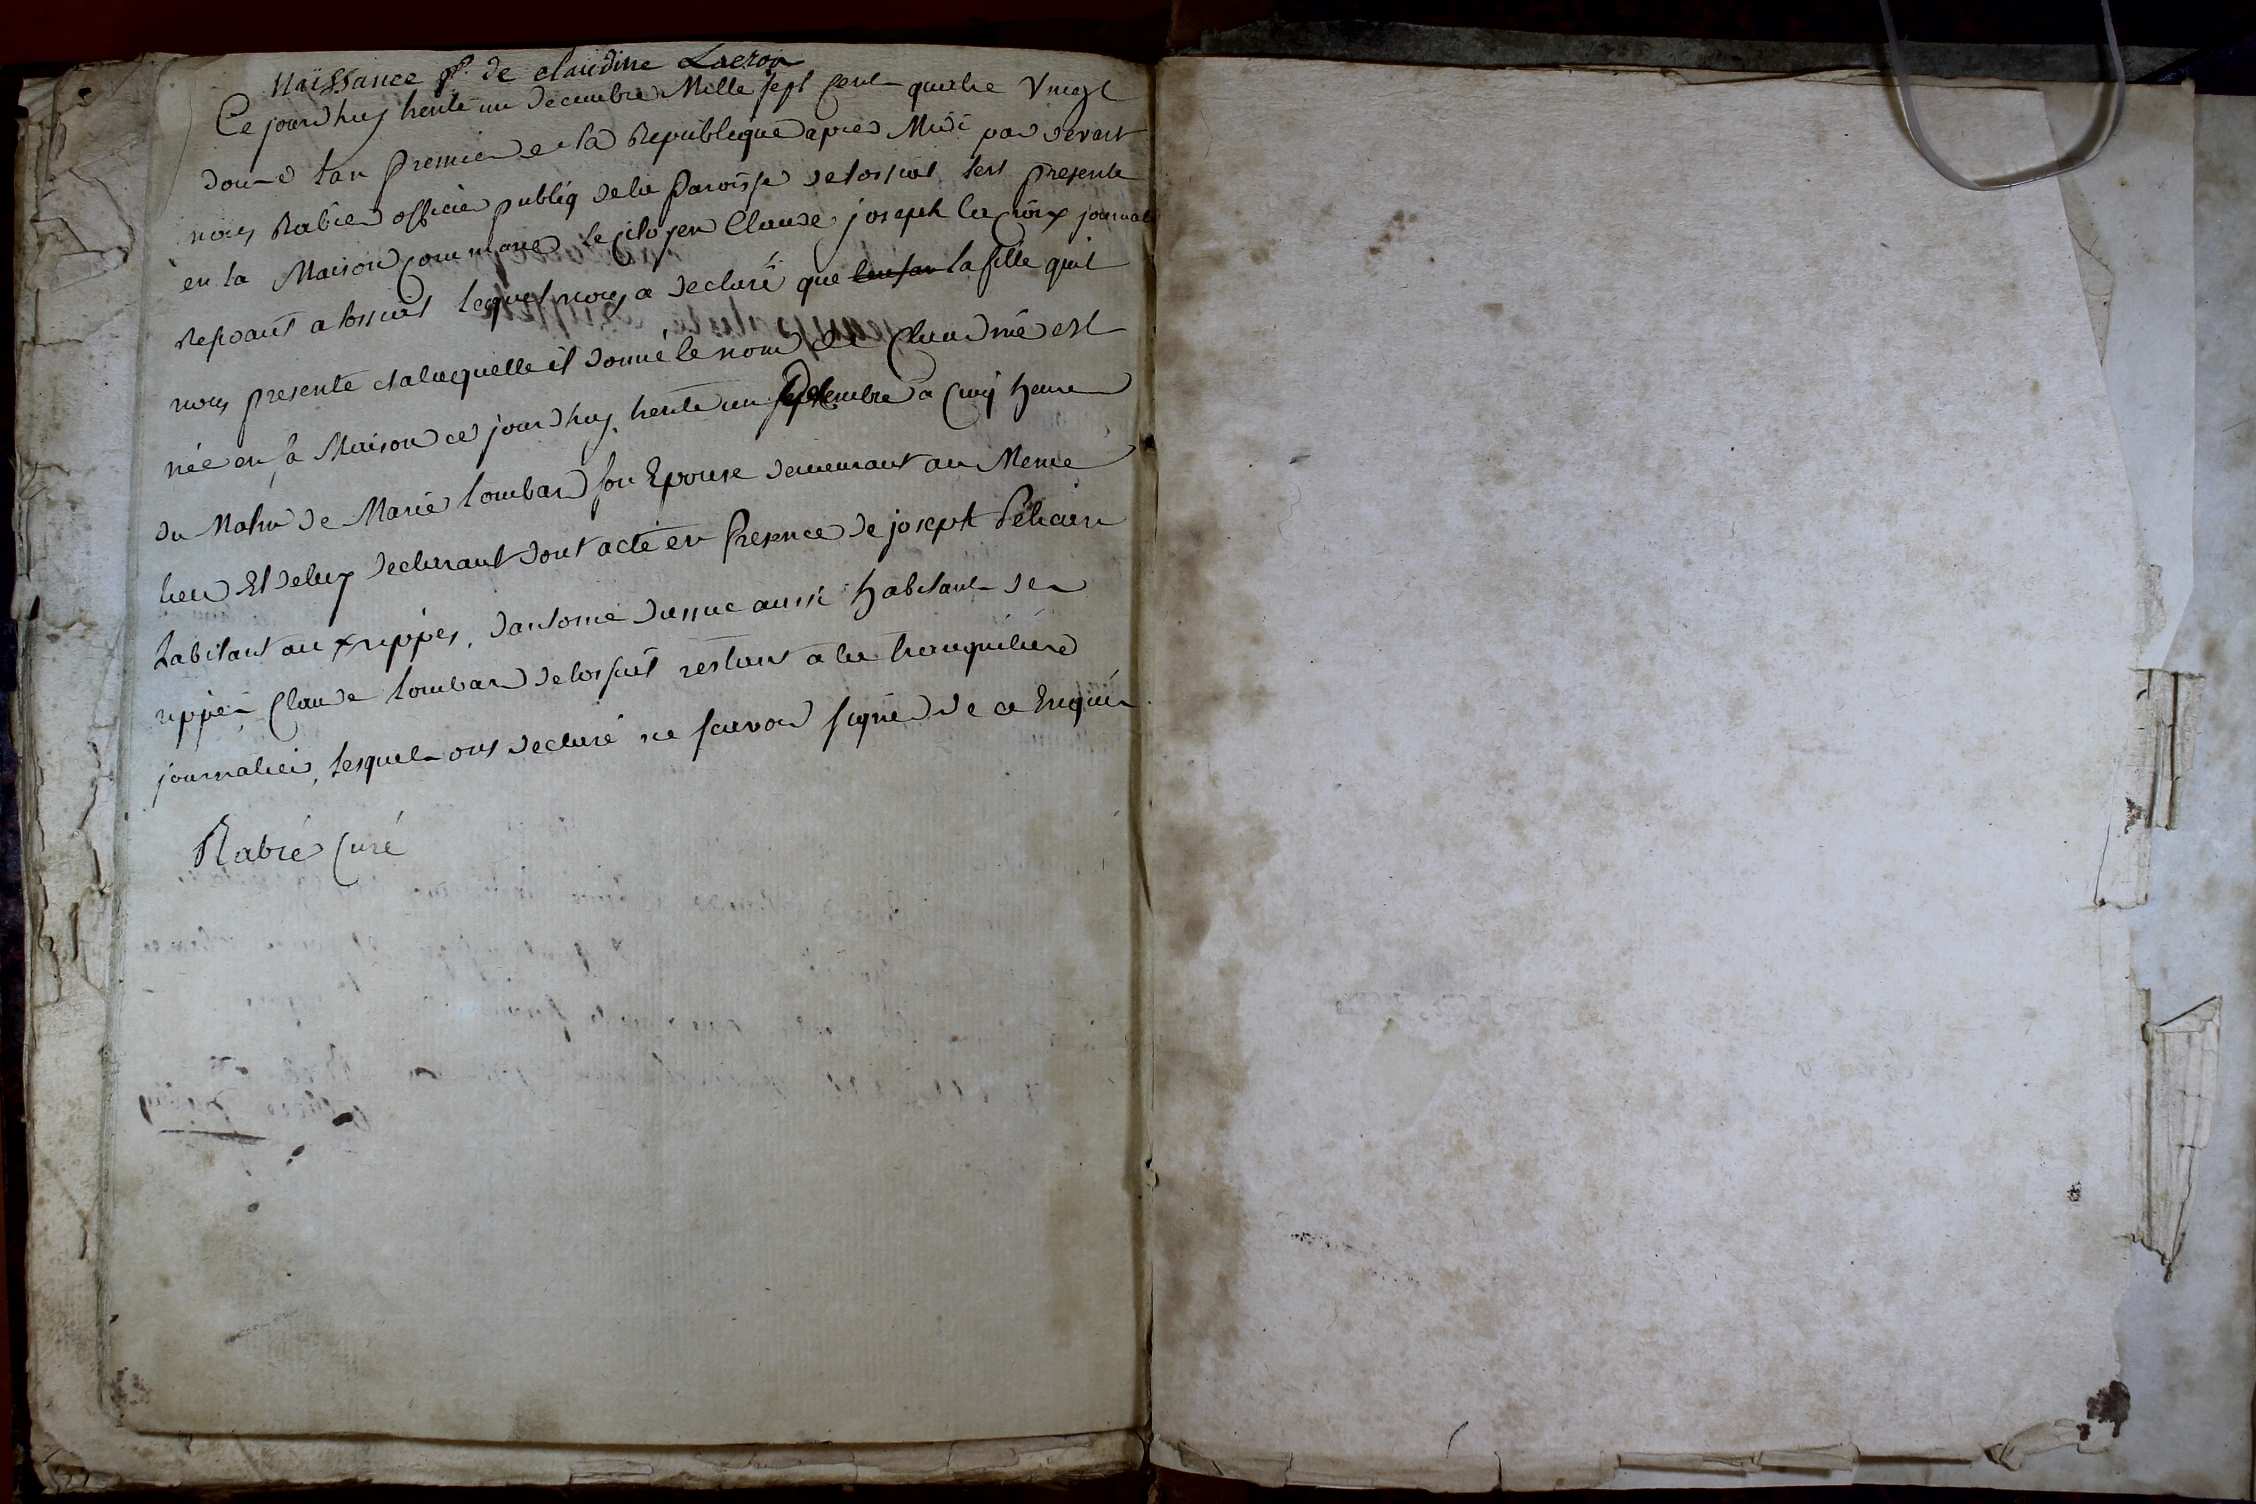 Naissance de claudine Lacroix
Ce jourdhuy trente un decembre Mille sept cent quatre Vingt
douze lan Premier de la Republique apres Midi par devant
nous Rabié officier publiq de la Paroisse de tossiat sest presente
en la Maison commune le citoyen Claude joseph la croix journal
Restant a tossiat lequel nous a declaré que lenfan la fille quil
nous presente et a laquelle il donné le nom de Claudine est
née en sa Maison ce jourdhuy trente un decembre a Cinq heure
du Matin de Marie lombard son Epouse demeurant au Meme
lieu Et de luy declarant dont acte en Presence de joseph
habitant aux rippes, dantoine aussi habitant de
rippes Claude lombard de tossiat restant a la tranquiliere
journalier, lesquel ont declaré ne scavoir signé de ce Enquis
Rabié Curé